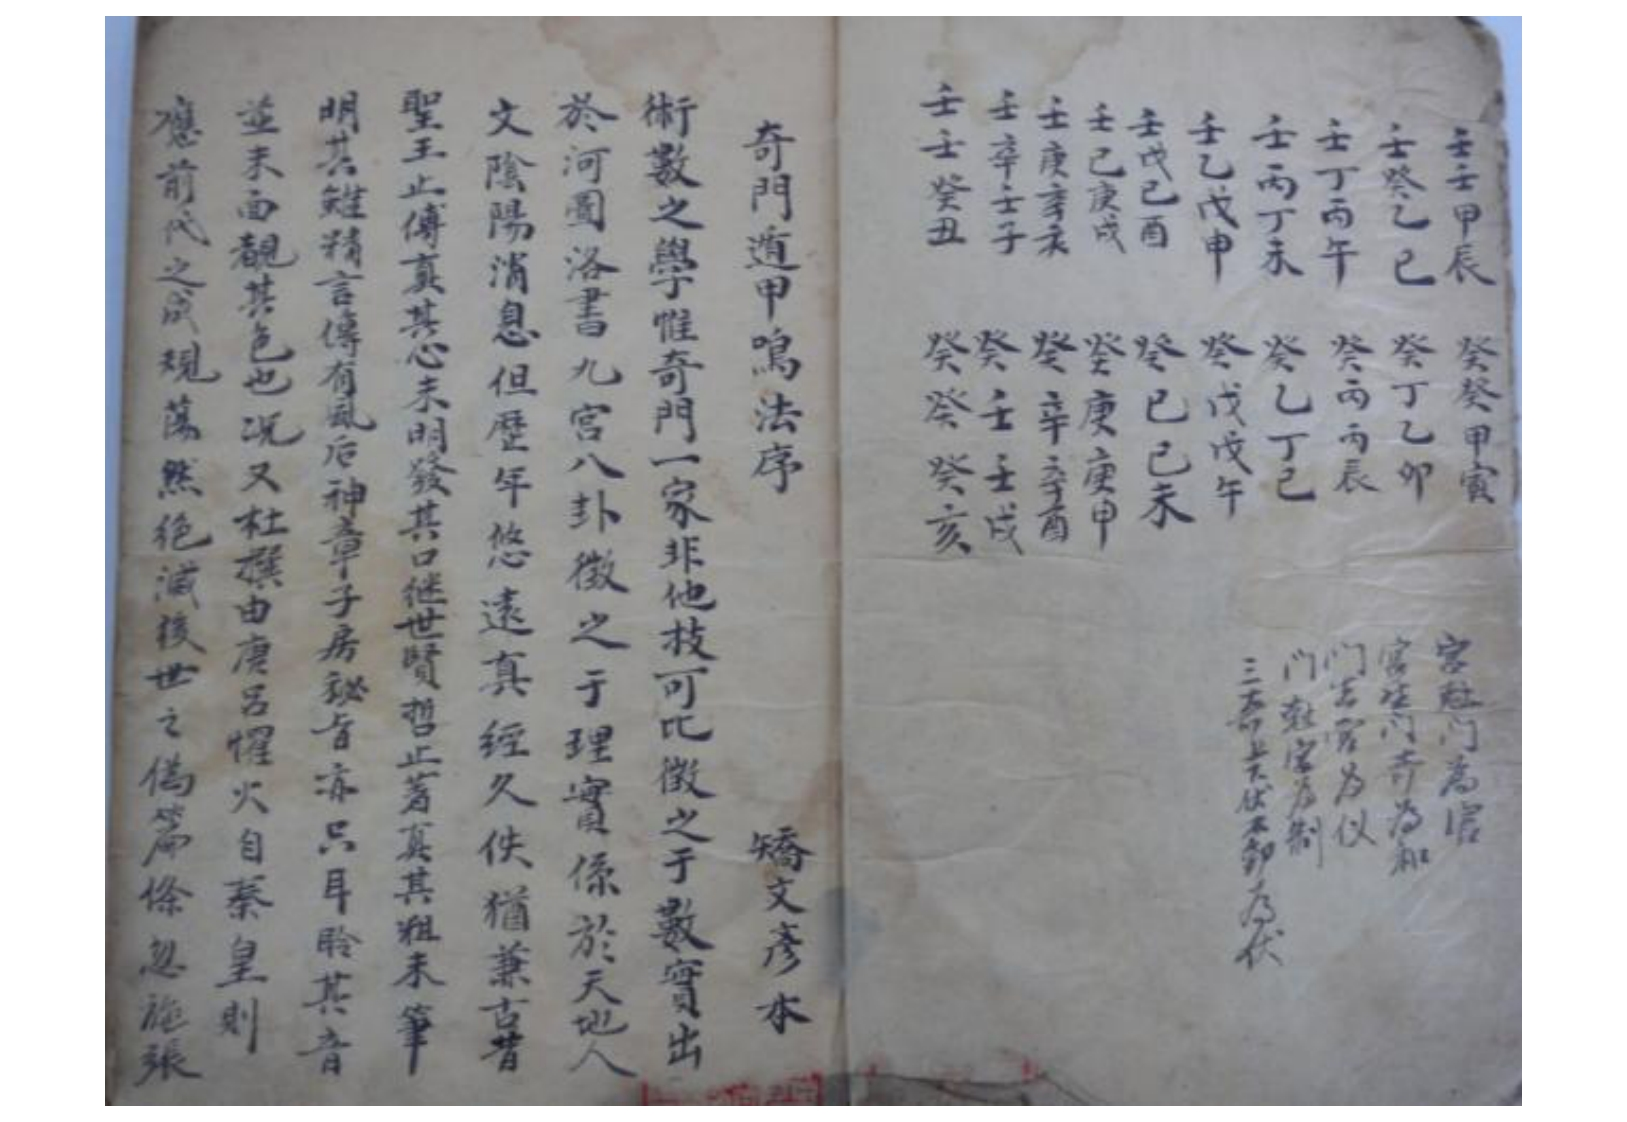 壬壬甲辰
壬癸乙巳
壬丁丙午
壬丙丁未
壬乙戊申
壬戊己酉
壬己庚戌
壬庚辛亥
壬辛壬子
壬壬癸丑
癸癸甲寅
癸丁乙卯
癸丙丙辰
癸乙丁巳
癸戊戊午
癸己己未
癸庚庚申
癸辛辛酉
癸壬壬戌
癸癸癸亥
宮尅门為宮
宮生门为和
门生宮为仪
门尅宮为制
三為伏
奇門遁甲鳴法序 矯文彥本
術數之學惟奇門一家非他技可比徵之于數實出
於河圖洛書九宮八卦徵之于理實係於天地人
文陰陽消息但歷年悠遠真經久佚猶兼古昔
聖王止傳真其心未明發其口继世賢哲止著真其粗未筆
明其雖精言傳有風后神章子房秘旨亦只耳聆其音
並未面覩其色也况又杜撰由唐呂燿火自秦皇則
應前代之成規蕩然絶滅後世之偽篇條忽施張